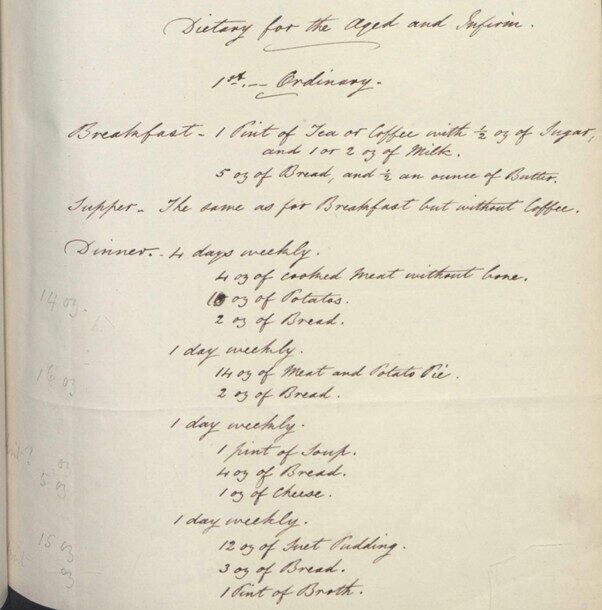 Dietary for the Aged and Infirm.
1st. -- Ordinary.
Breakfast - 1 Pint of Tea or Coffee with ½ oz of Sugar,
and 1 or 2 oz of Milk.
5 oz of Bread, and ½ an ounce of Butter.
Supper - The same as for Breakfast but without Coffee.
Dinner. - 4 days weekly.
4 oz of cooked Meat without bone.
oz of Potatos.
14 oz.
2 oz of Bread.
1 day weekly.
14 oz of Meat and Potato Pie.
oz
2 oz of Bread.
1 day weekly.
1 pint of Soup.
4 oz of Bread.
5 oz
1 oz of Cheese.
1 day weekly.
12 oz of Suet Pudding.
15 oz
3 oz of Bread.
oz
1 Pint of Broth.